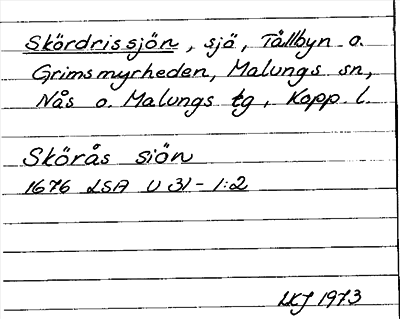 Skördrissjön, sjö, Tållbyn o.
Grimsmyrheden, Malungs sn,
Nås o. Malungs tg, Kopp. l.
Skörås siön
1676 LSA U 31-1:2
LKJ 1973